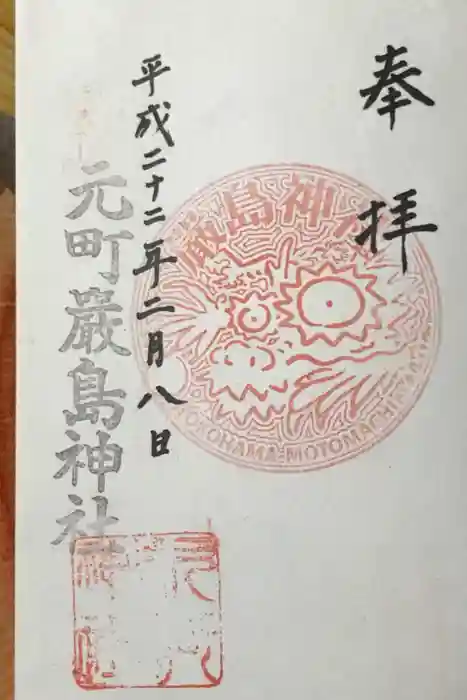 奉拝
厳島神社
YOKOHAMA MOTOMACHI
平成二十二年二月八日
元町嚴島神社